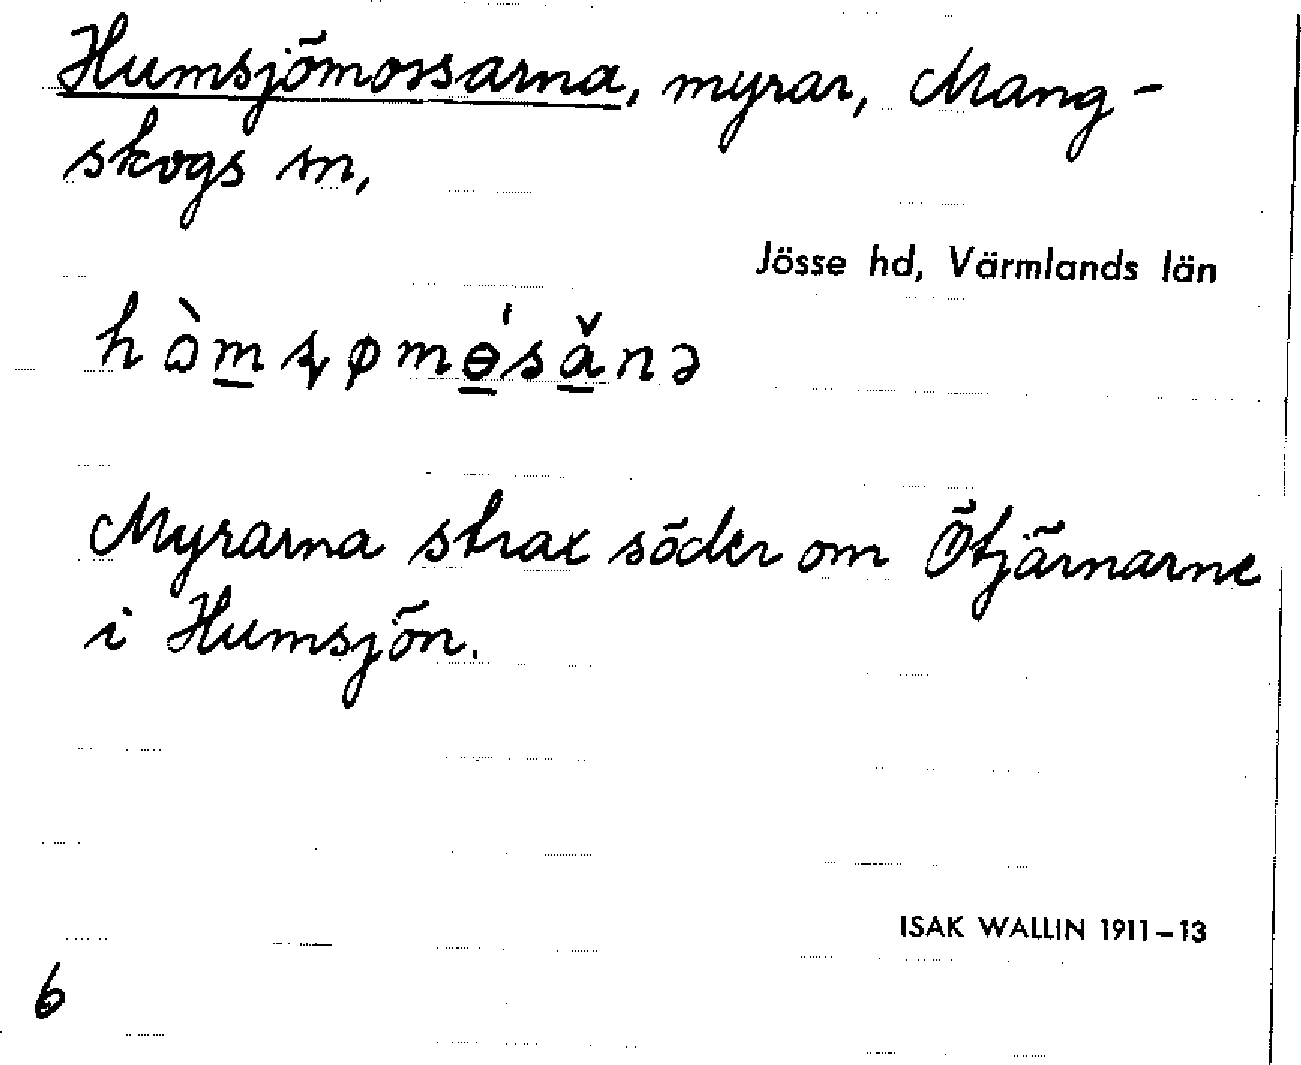 Humsjömossarna, myrar, Mang-
skogs sn,
Jösse hd, Värmlands län
Myrarna strax söder om Ötjärnarne
i Humsjön.
ISAK WALLIN 1911–13
6